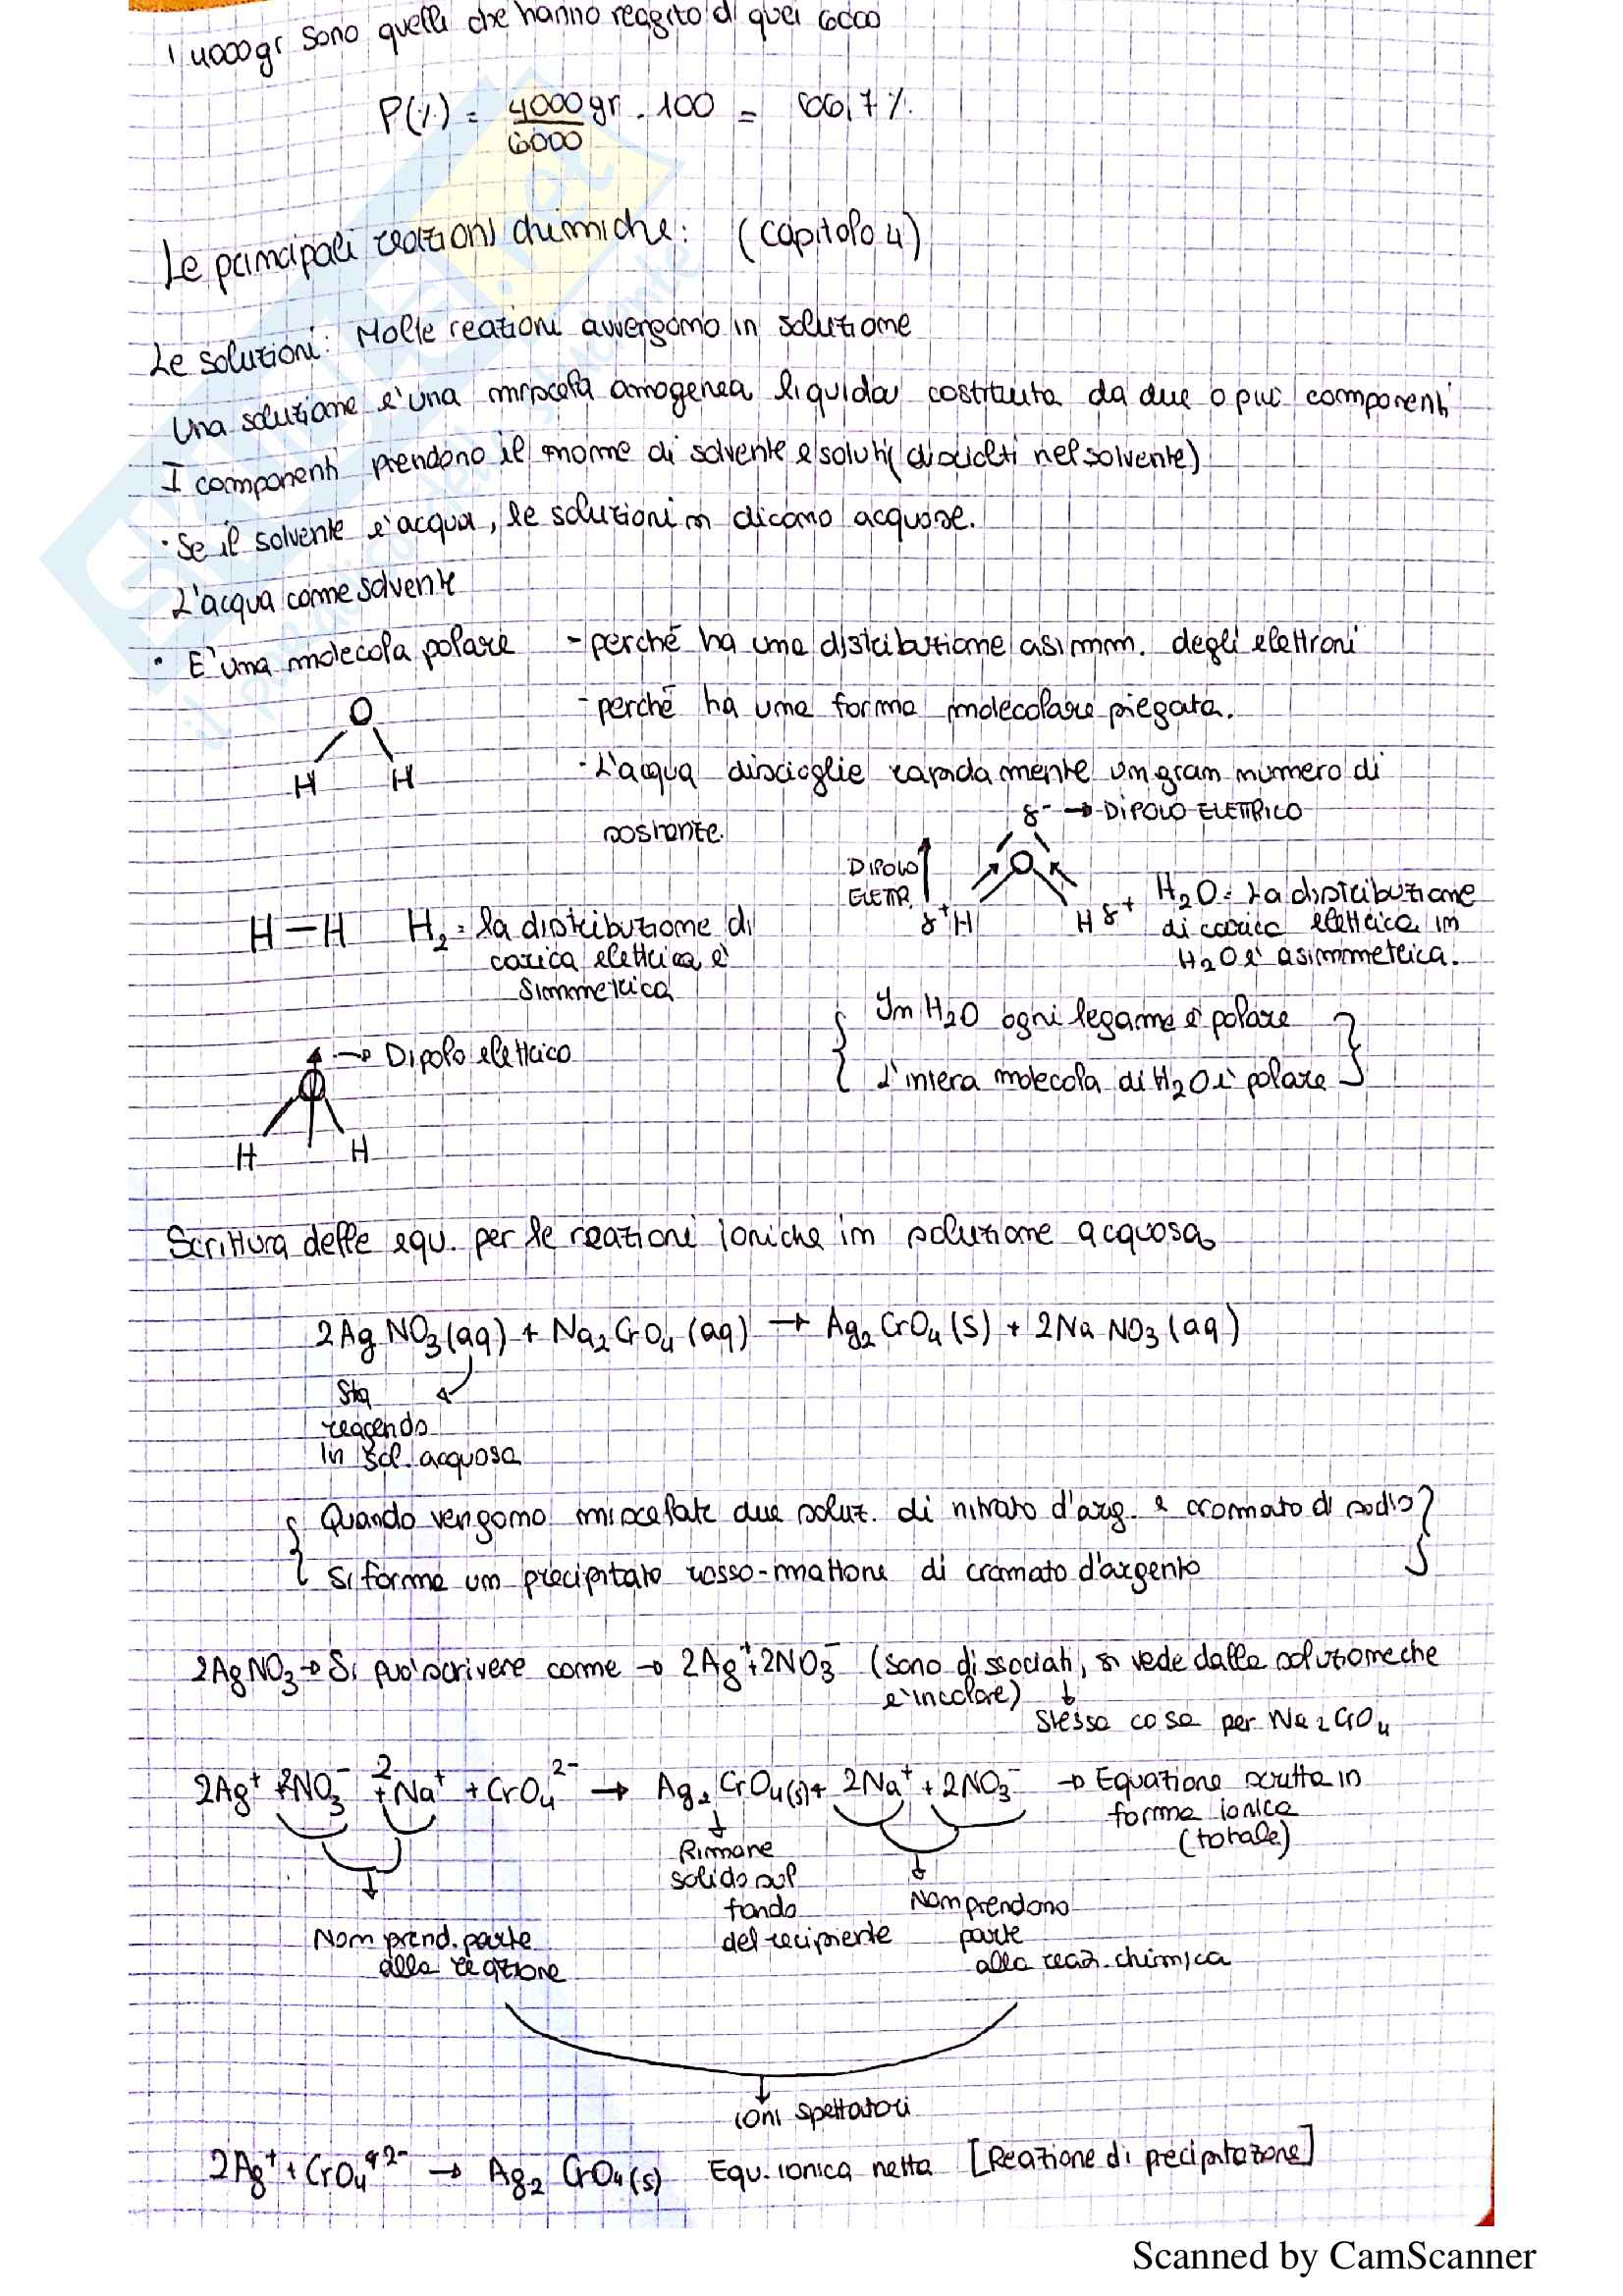 I 4000gr sono quelli che hanno reagito di quei 6000
P(%) = 4000gr/6000 . 100 = 66,7%.
Le principali reazioni chimiche: (capitolo 4)
Le soluzioni: Molte reazioni avvengono in soluzione
Una soluzione è una miscela omogenea liquida costituita da due o più componenti
I componenti prendono il nome di solvente e soluti (disciolti nel solvente)
· Se il solvente è acqua, le soluzioni si dicono acquose.
L'acqua come solvente
· E' una molecola polare - perché ha una distribuzione asimm. degli elettroni
- perché ha una forma molecolare piegata.
O
H H
- L'acqua discioglie rapidamente un gran numero di
sostanze.
δ- → DIPOLO ELETTRICO
DIPOLO
ELETTR.
O
δ+H H δ+
H2O: La distribuzione
di carica elettrica in
H2O è asimmetrica.
H-H H2: la distribuzione di
carica elettrica è
simmetrica
In H2O ogni legame è polare
L'intera molecola di H2O è polare
→ Dipolo elettrico
O
H H
Scrittura delle equ. per le reazioni ioniche in soluzione acquosa
2AgNO3(aq) + Na2CrO4(aq) → Ag2CrO4(s) + 2NaNO3(aq)
Sta
reagendo
in sol. acquosa
Quando vengono miscelate due soluz. di nitrato d'arg. e cromato di sodio
si forma un precipitato rosso-mattone di cromato d'argento
2AgNO3 → Si può scrivere come → 2Ag+ + 2NO3- (sono dissociati, si vede dalla soluzione che
è incolore) ↓
stessa cosa per Na2CrO4
2Ag+ + 2NO3- + 2Na+ + CrO4 2- → Ag2CrO4(s) + 2Na+ + 2NO3- → Equazione scritta in
forma ionica
(totale)
Rimane
solido sul
fondo
del recipiente
Non prendono
parte
alla reaz. chimica
Non prend. parte
alla reazione
ioni spettatori
2Ag+ + CrO4 2- → Ag2CrO4(s) Equ. ionica netta [Reazione di precipitazione]
Scanned by CamScanner